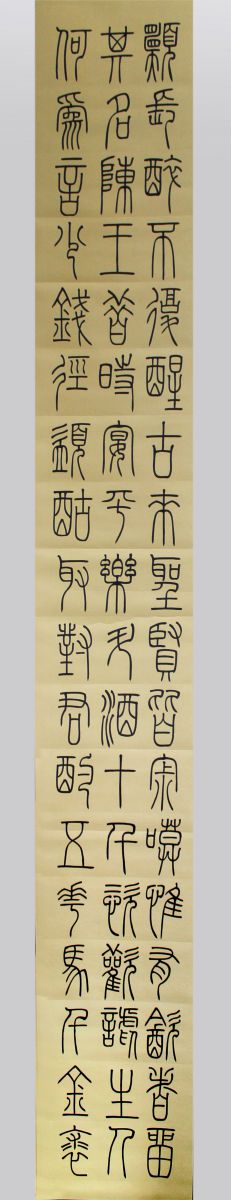 願長醉不復醒古來聖賢皆寂嗼惟有飲者留
其名陳王昔時宴平樂斗酒十千恣歡謔主人
何為言少錢徑須酤取對君酌五花馬千金裘